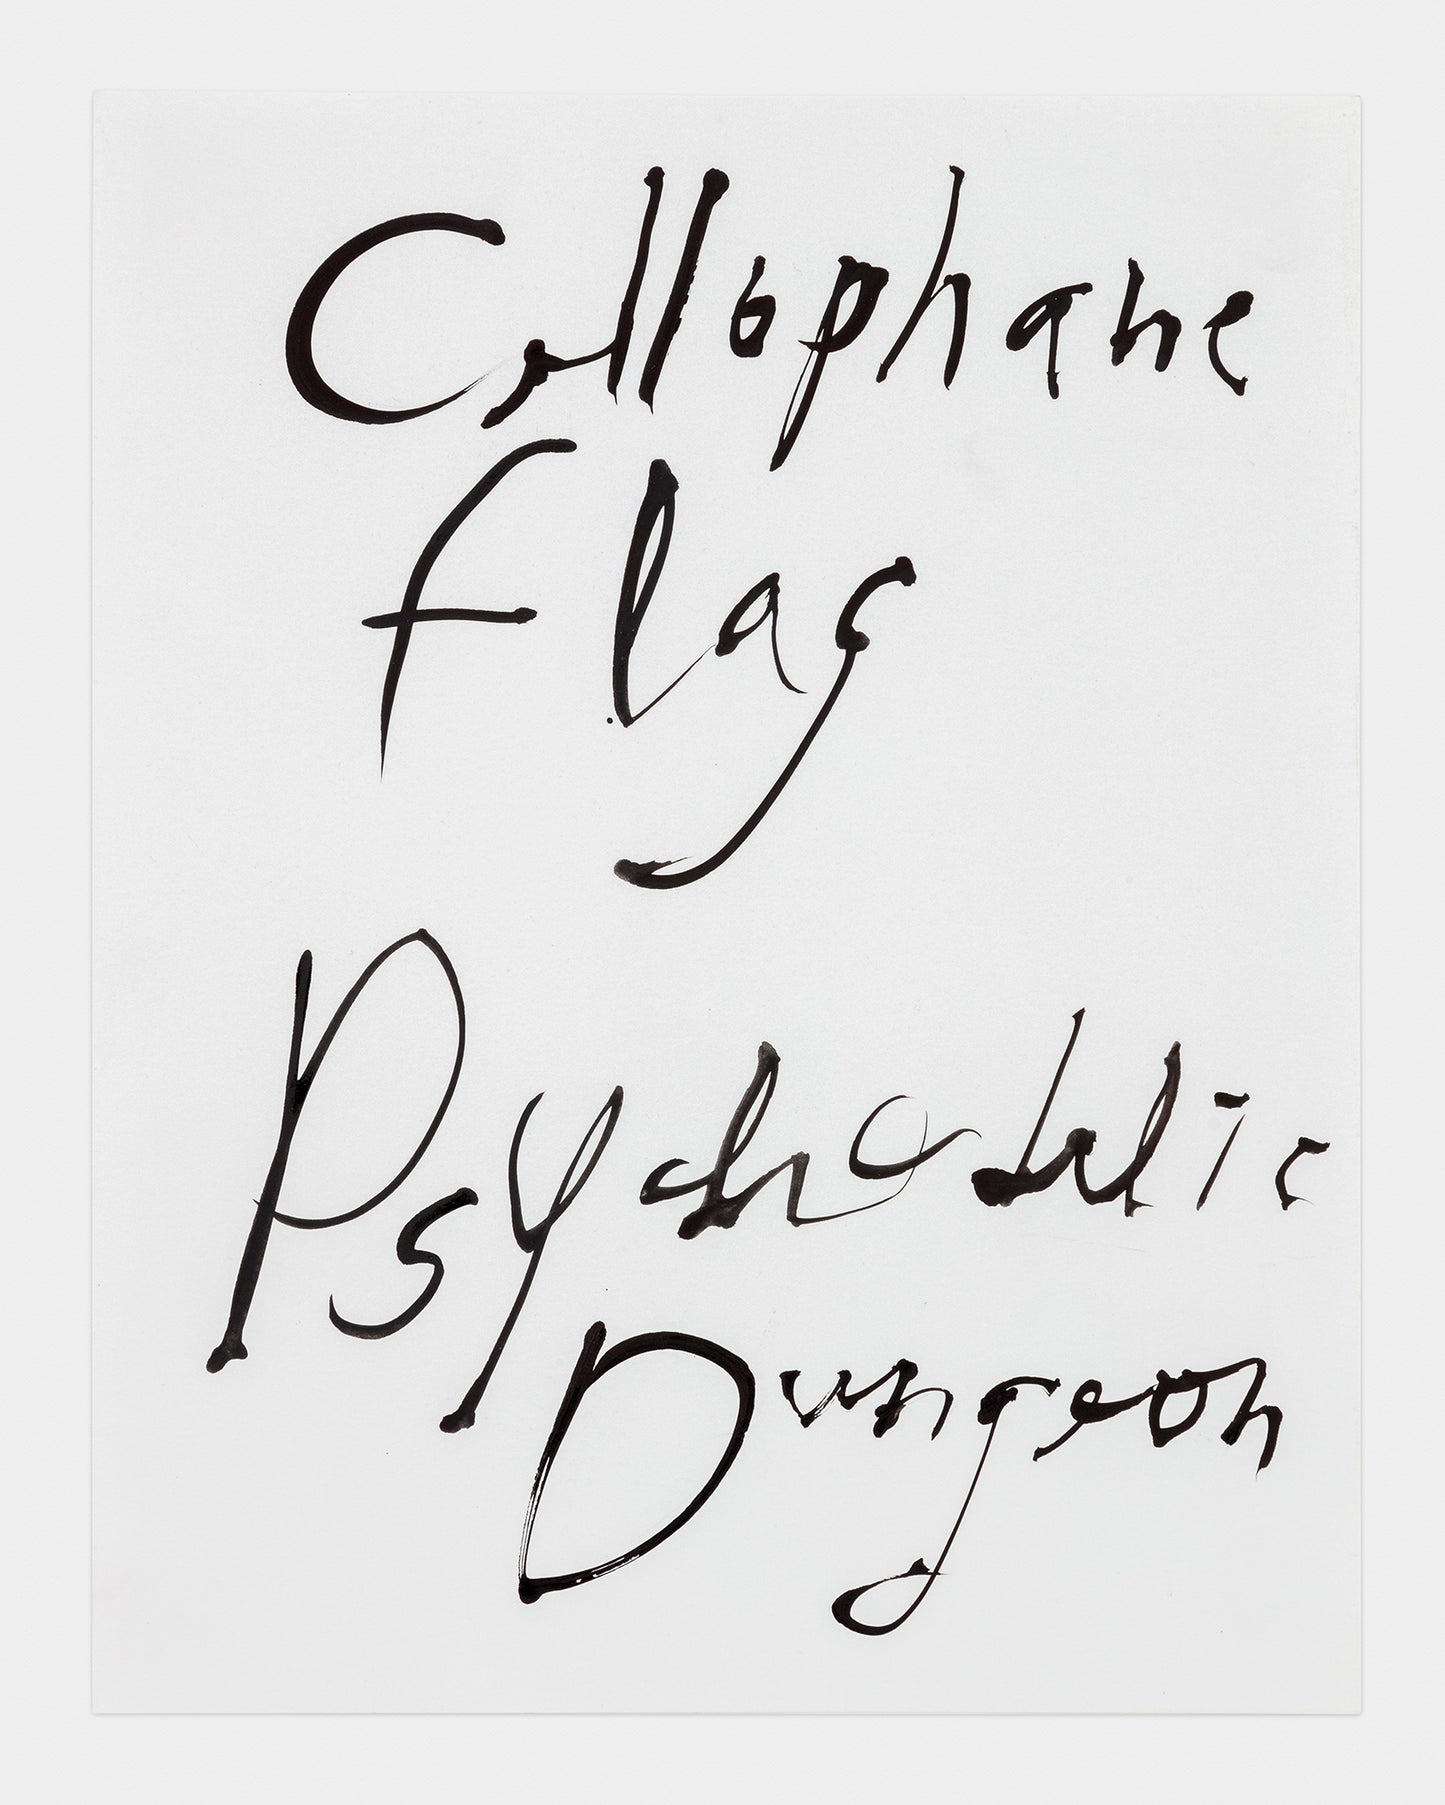 Cellophane
Flag
Psychedelic
Dungeon